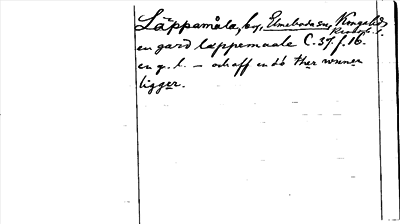 Läppamåla, by, Elmeboda sn, Kongahds
Kronob. l.
en gard læppemaale C. 37. f. 16.
en g. l. – och aff en d:o ther wnner
ligger.